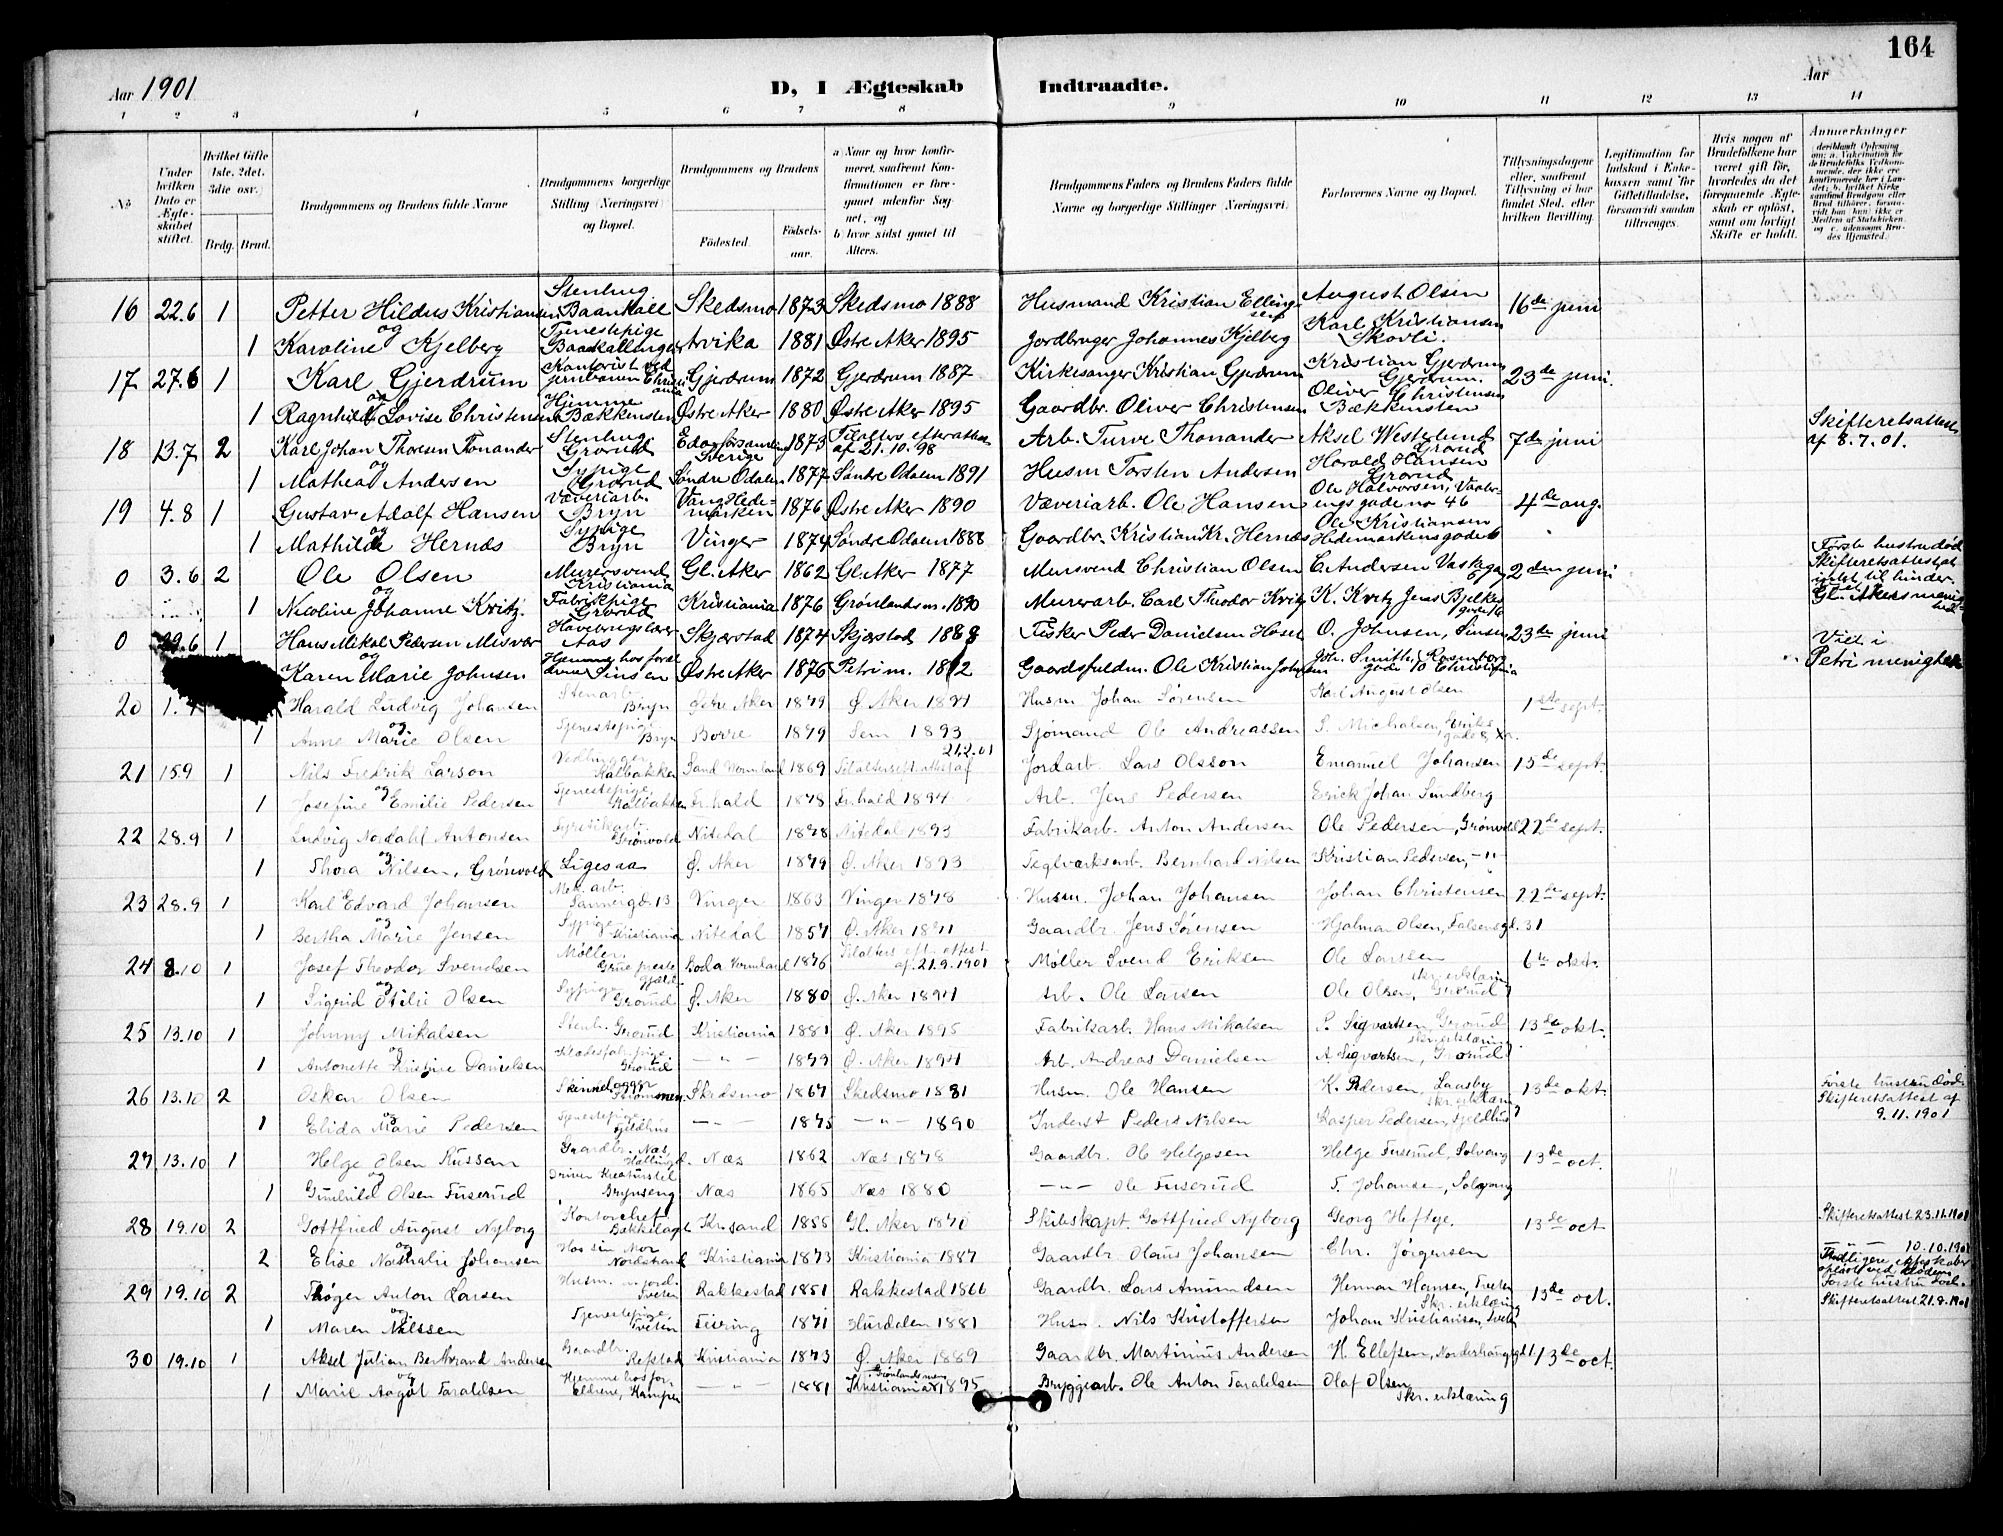 164
Aar 1901
D, I Ægteskab Indtraadte.
Aar
1 2 3 4 5 6 7 8 9 10 11 12 13 14
No
Under hvilken Dato er Ægteskabet stiftet.
Hvilket Gifte 1ste. 2det. 3die osv.
Brdg. Brud.
Brudgommens og Brudens fulde Navne
Brudgommens borgerlige Stilling (Næringsvei) og Bopæl.
Brudgommens og Brudens
Fødested.
Fødselsaar.
a) Naar og hvor konfirmeret, saafremt Konfirmationen er foregaaet udenfor Sognet, og b) hvor sidst gaaet til Alters.
Brudgommens Faders og Brudens Faders fulde Navne og borgerlige Stillinger (Næringsvei)
Forlovernes Navne og Bopæl.
Tillysningsdagene eller, saafremt Tillysning ei har fundet Sted, efter hvilken Bevilling.
Legitimation for Indskud i Enkekassen samt for Giftetilladelse, forsaavidt saadan tiltrænges.
Hvis nogen af Brudefolkene har været gift før, hvorledes da det foregaaende Ægteskab er opløst, samt om lovligt Skifte er holdt.
Anmerkninger
16 22.6 1 Petter Hildus Kristiansen Stenhug Baankall Skedsmo 1873 Skedsmo 1888 Husmand Kristian Ellingsen August Olsen 16de juni
og
1 Karoline Kjelberg Tjenestepige Baankallengen Arvika 1881 Østre Aker 1895 Jordbruger Johannes Kjelberg Karl Kristiansen Skovli.
17 27.6 1 Karl Gjerdrum Kontorist ved jernbanen Christiania Gjerdrum 1872 Gjerdrum 1887 Kirkesanger Kristian Gjerdrum Kristian Gjerdrum Gjerdrum. 23de juni.
og
1 Ragnhild Lovise Christensen Hjemme Bækkensten Østre Aker 1880 Østre Aker 1895 Gaardbr. Oliver Christensen Oliver Christensen Bækkensten
18 13.7 2 Karl Johan Thoresen Tonander Stenhug Grorud Eda forsamling Sverige 1873 Tilalters efter attest af 21.10.98 Arb. Turve Thonander Aksel Westerlund Grorud 7de juni Skifteretsattest af 8.7.01.
og
1 Mathea Andersen Sypige Grorud Søndre Odalen 1877 Søndre Odalen 1891 Husm Torsten Andersen Harald Hansen Grorud
19 4.8 1 Gustav Adolf Hansen Væveriarb. Bryn Vang Hedemarken 1876 Østre Aker 1890 Væveriarb. Ole Hansen Ole Halvorsen, gade no 46 4de aug.
og
1 Mathilde Hernæs Sypige Bryn Vinger 1874 Søndre Odalen 1888 Gaardbr. Kristian Kr. Hernæs Ole Kristiansen Hedemarkensgade 6
0 3.6 2 Ole Olsen Murersvend Kristiania Gl. Aker 1862 Gl. Aker 1877 Mursvend Christian Olsen C. Andersen 2den juni Første hustru død Skifteretsattest at intet til hinder. Gl. Akers menighed
og
1 Nicoline Johanne Kvitz. Fabrikpige Grorud Kristiania 1876 Grønlands m. 1890 Murerarb. Carl Theodor Kvitz K. Kvitz Jens Bjelkes gade 16
0 29.6 1 Hans Mikal Pedersen Misvær Havebrugslærer Aas Skjærstad 1874 Skjærstad 1888 Fisker Peder Danielsen O. Johnsen, Sinsen 23de juni Viet i Petri menighed
og
Karen Marie Johnsen Hjemme hos forældrene Sinsen Østre Aker 1876 Petri m. Gaardsfuldm. Ole Kristian Johnsen Joh. Smith, Rosenborg gade 10 Christiania
20 Harald Ludvig Johansen Stenarb. Bryn Østre Aker 1879 Ø. Aker 1894 Husm Johan Sørensen Karl August Olsen 1ste sept.
og
1 Anne Marie Olsen Tjenestepige Bryn Borre 1879 Sem 1893 Sjømand Ole Andreassen P. Michalsen,
21 15.9 1 Nils Fredrik Larson Kalbakken Sand Vermland 1869 Tilalters eft. attest af 21.2.01 Jordarb. Lars Olsson Emanuel Johansen 15de sept.
og
1 Josefine Emilie Pedersen Tjenestepige, Kalbakken Fr.hald 1878 Fr.hald 1894 Arb. Jens Pedersen Erick Johan Sundberg
22 28.9 1 Ludvig Nordahl Antonsen Grønvold Nitedal 1878 Nitedal 1893 Fabrikarb. Anton Andersen Ole Pedersen, Grønvold 22de sept.
og
1 Thora Nilsen, Grønvold Ligesaa Ø. Aker 1879 Ø. Aker 1893 Teglværksarb. Bernhard Nilsen Kristian Pedersen, -"-
23 28.9 1 Karl Edvard Johansen Mek. arb. Sannergd. 13 Vinger 1863 Vinger 1878 Husm. Johan Johansen Johan Christensen 22de sept.
og
1 Bertha Marie Jensen Sypige Kristiania Nitedal 1857 Ø. Aker 1871 Gaardbr. Jens Sørensen Hjalmar Olsen, Falsensgd. 31
24 8.10 1 Josef Theodor Svendsen Møller Grue prestegjæld Boda Vermland 1876 Tilalters eft. attest af 21.9.1901 Møller Svend Eriksen Ole Larsen 6te okt.
og
1 Sigrid Otilie Olsen Sypige Grorud Ø. Aker 1880 Ø. Aker 1894 Arb. Ole Larsen Ole Olsen, Grorud skr. erklæring
25 13.10 1 Johnny Mikalsen Stenh. Grorud Kristiania 1881 Ø. Aker 1895 Fabriksarb. Hans Mikalsen P. Sigvartsen, Grorud 13de okt.
og
1 Antonette Kristine Danielsen Grorud -"- 1879 Ø. Aker 1894 Arb. Andreas Danielsen A. Sigvartsen, Grorud skr. erklæring
26 13.10 2 Oskar Olsen Skinnelægger Strømmen Skedsmo 1867 Skedsmo 1881 Husm. Ole Hansen K. Pedersen, 13de okt. Første hustru død. Skifteretsattest af 9.11.1901
og
1 Elida Marie Pedersen Tjenestepige Fjeldhus -"- 1875 -"- 1890 Inderst Peder Nilsen Kasper Pedersen, Fjeldhus skr. erklæring
27 13.10 1 Helge Olsen Russam Gaardbr. Næs, Hallingd. Næs 1862 Næs 1878 Gaardbr. Ole Helgesen Helge Fuserud, Solvang 13de oct.
og
1 Gunhild Olsen Fuserud Driver Brynseng Næs 1865 Næs 1880 -"- Ole Fuserud T. Johansen, Solvang
28 19.10 2 Gottfried August Nyborg Kontorchef Bekkelaget Kr.sand 1855 Gl. Aker 1870 Skibskapt. Gottfried Nyborg Georg Heftye. 13de oct Skifteretsattest 23.11.1901
og
2 Elise Nathalie Johansen Hos sin Mor Nordstrand Kristiania 1873 Kristiania 1887 Gaardbr. Olaus Johansen Chr. Jørgensen -"- 10.10.1901 Tidligere ægteskaber opløst ved døden.
29 19.10 2 Thøger Anton Larsen Husm. m. jord. Tveten Rakkestad 1851 Rakkestad 1866 Gaardbr. Lars Amundsen Herman Hansen, Tveten 13de oct. Første hustru død. Skifteretsattest 21.8.1901
og
1 Maren Nilssen Tjenestepige, Tveten Feiring 1871 Hurdalen 1881 Husm. Nils Kristoffersen Johan Kristiansen, Tveten Skr. erklæring
30 19.10 1 Aksel Julian Berthrand Andersen Gaardbr. Refstad Kristiania 1873 Ø. Aker 1889 Gaardbr. Martinius Andersen H. Ellefsen, Norderhaugsgd 13de oct.
og
1 Marie Aagot Faraldsen Hjemme hos forældrene, Kampen -"- 1881 Grønlands men. Kristiania 1895 Bryggearb. Ole Anton Faraldsen Olaf Olsen Skr. erklæring